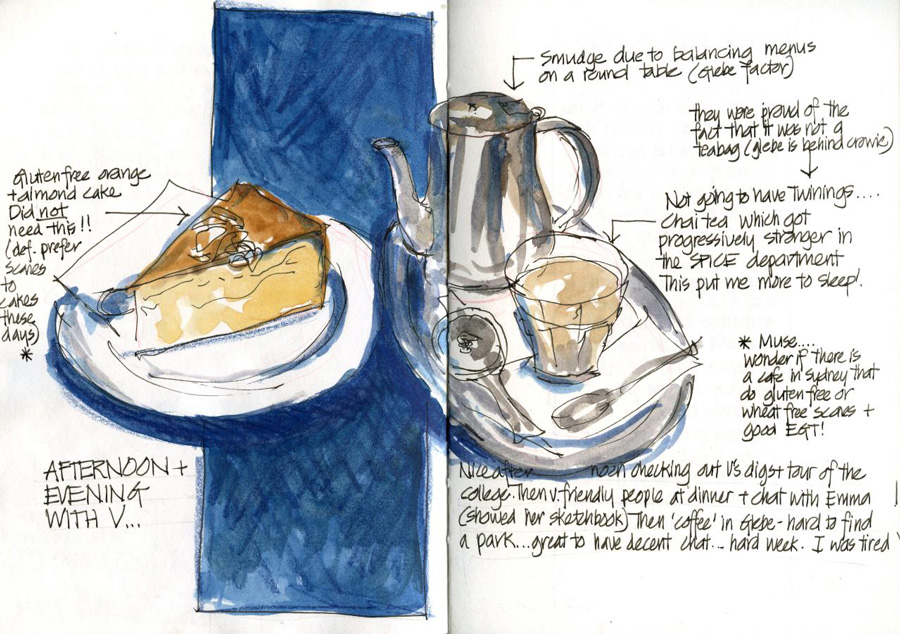 Smudge due to balancing menus
on a round table (Glebe factor)
they were proud of the
fact that it was not a
teabag (glebe is behind crowie)
Not going to have Twinings....
Chai tea which got
progressively stronger in
the SPICE department
This put me more to sleep!
Gluten free orange
+ almond cake
Did not
need this!!
(def. prefer
scones
to
cakes
these
days)
*
* Muse....
wonder if there is
a cafe in sydney that
do gluten free or
wheat free scones +
good EGT!
AFTERNOON +
EVENING
WITH V...
Nice after noon checking out V's digs + tour of the
college. Then v. friendly people at dinner + chat with Emma
(showed her sketchbook) Then 'coffee' in Glebe - hard to find
a park... great to have decent chat... hard week. I was tired